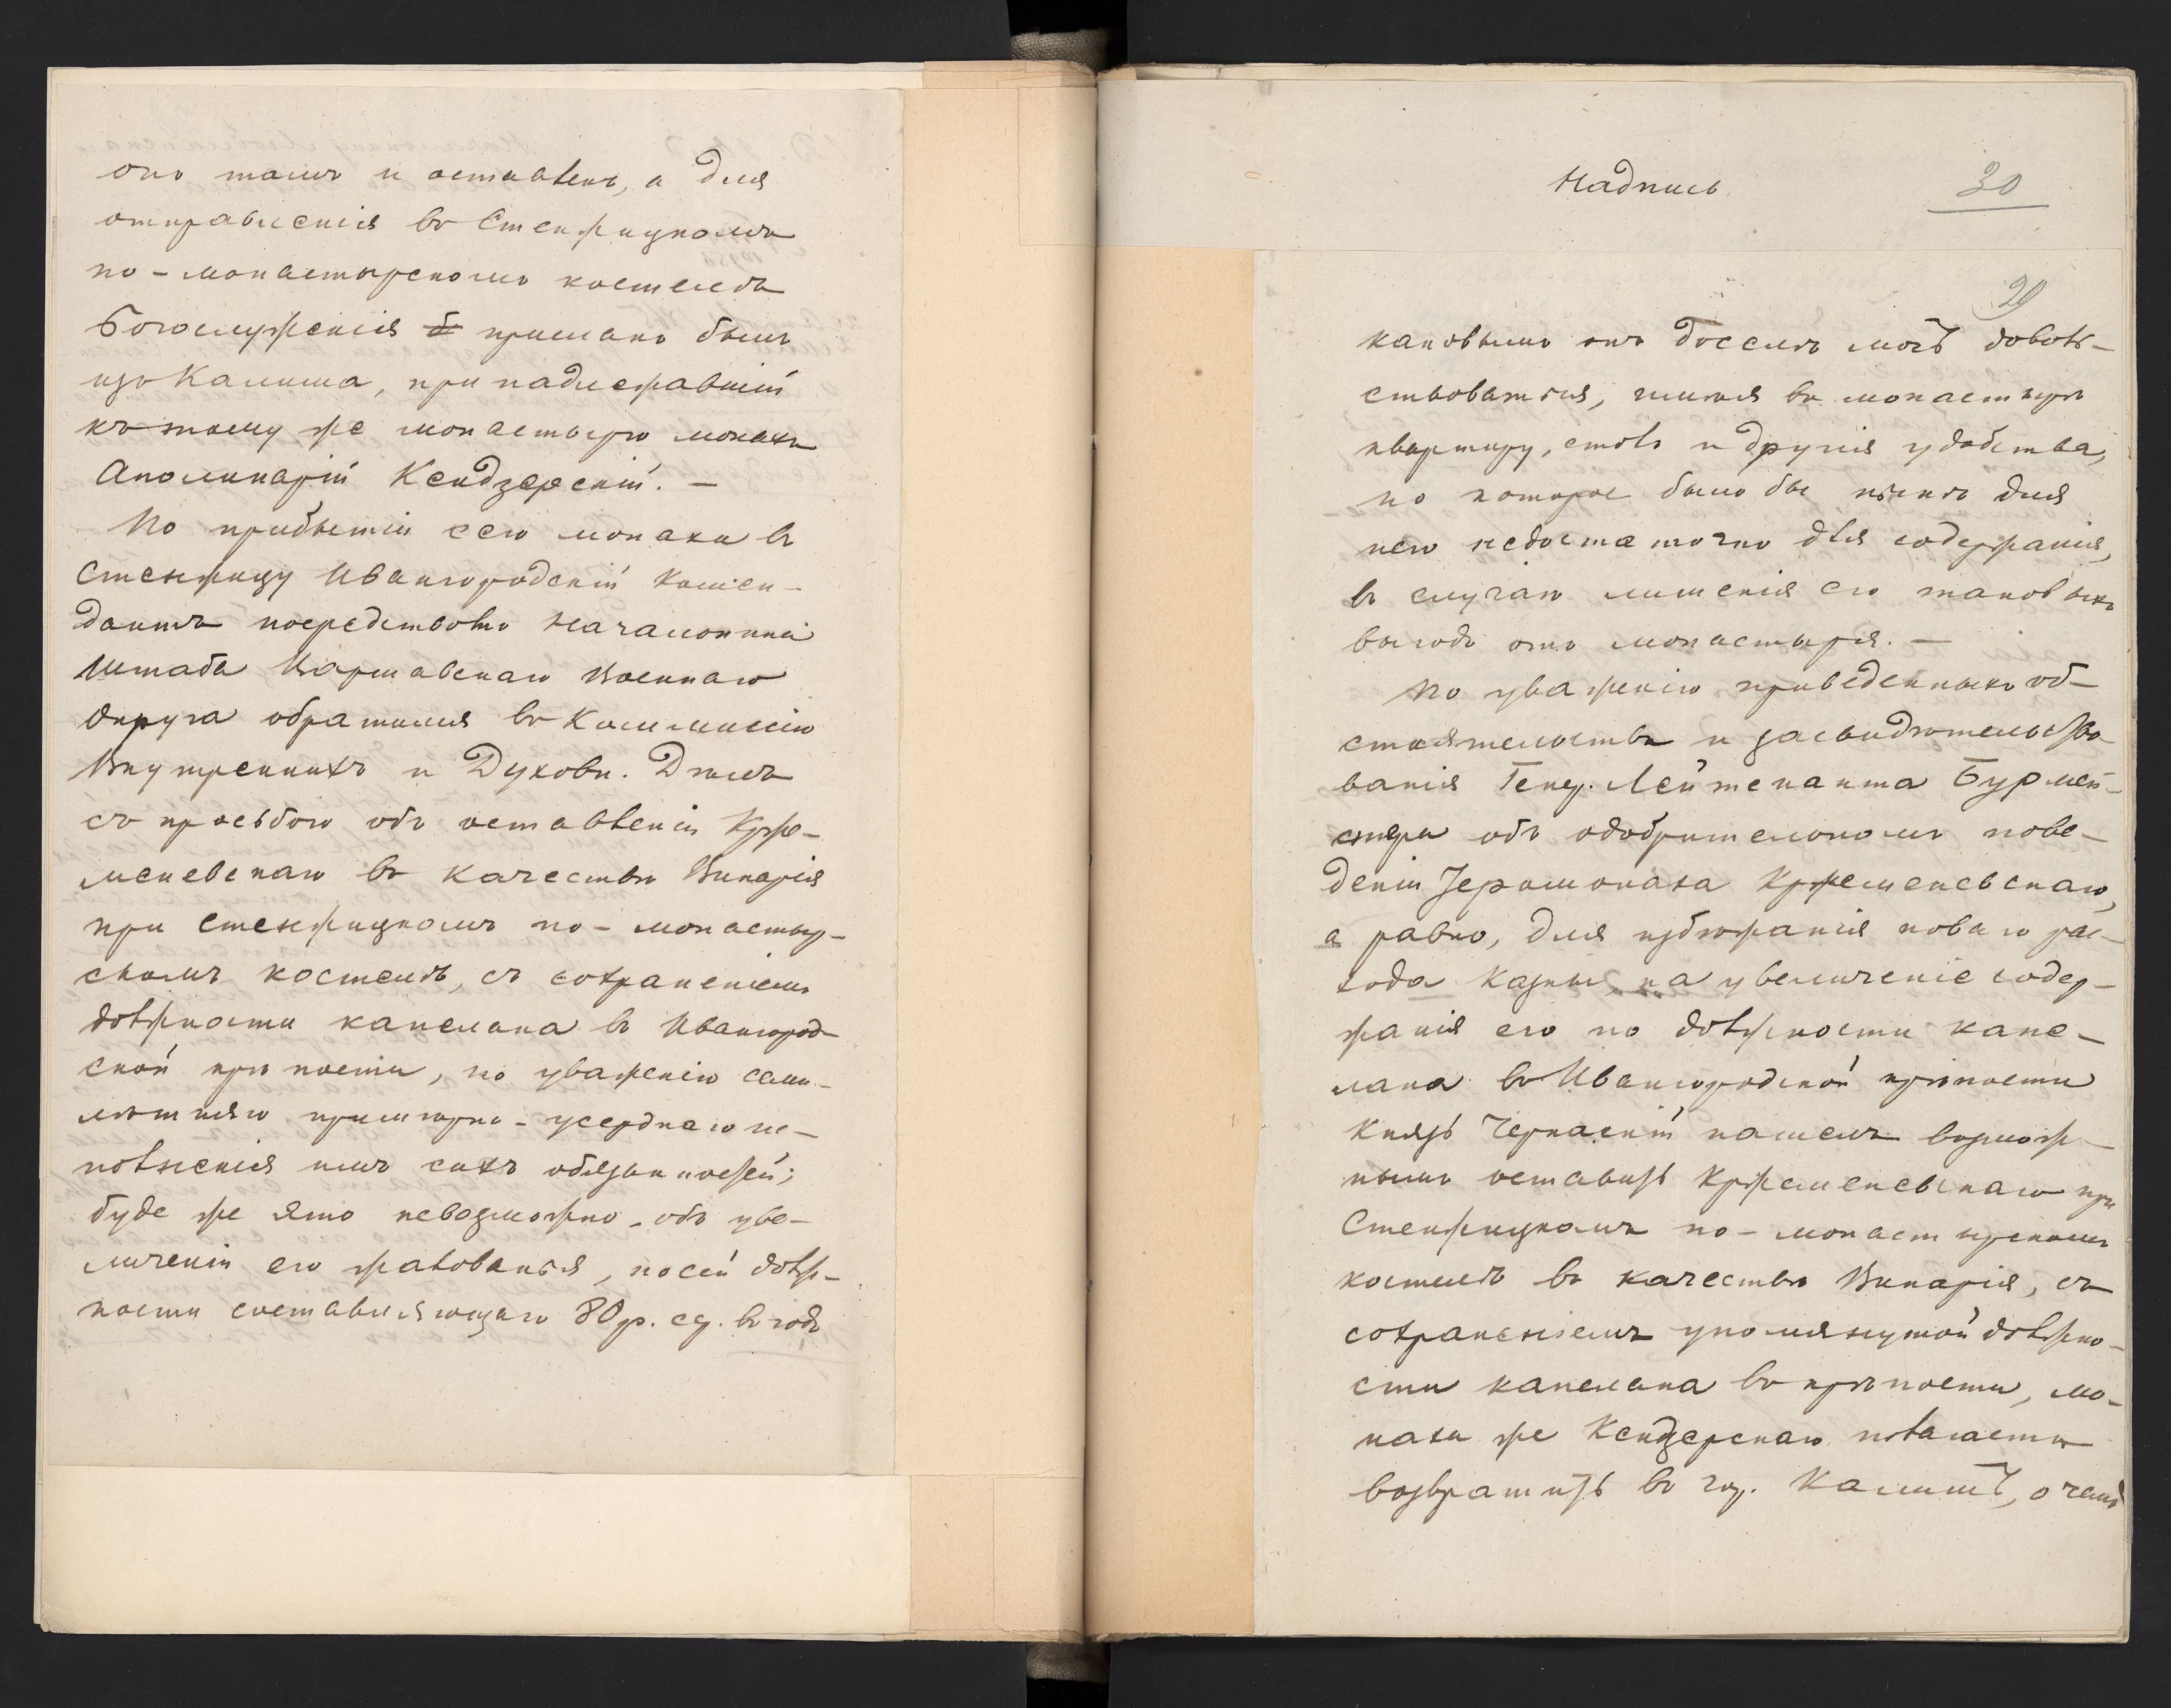 онъ тамъ и оставленъ, а для
отправленія въ Стенжицкомъ
по-монастырскомъ костелѣ
Богослуженія б присланъ былъ
изъ Калиша, принадлежавшій
къ тому же монастырю монахъ
Аполинарій Кендзерскій. —
По прибытіи сего монаха въ
Стенжицу Ивангородскій Комен-
дантъ посредствомъ Начальника
Штаба Варшавскаго Военнаго
Округа обратился въ Коммиссію
Внутреннихъ и Духовн. Дѣлъ
съ просьбою объ оставленіи Крже-
меневскаго въ качествѣ Викарія
при Стенжицкомъ по-монастыр-
скомъ костелѣ, съ сохраненіемъ
должности капелана въ Ивангород-
ской крѣпости, по уваженію семи-
лѣтняго примѣрно-усерднаго ис-
полненія имъ сихъ обязанностей;
буде же это невозможно - объ уве-
личеніи его жалованья, по сей долж-
ности составляющаго 80 р. ср. въ годъ
Надпись
30
29
каковымъ онъ доселѣ могъ доволь-
ствоваться, имѣя въ монастырѣ
квартиру, столъ и другія удобства,
но которое было бы нынѣ для
него недостаточно для содержанія,
въ случаѣ лишенія его таковыхъ
выгодъ отъ монастыря. —
По уваженію приведенныхъ об-
стоятельствъ и засвидѣтельство-
ванія Генер. Лейтенанта Бурмей-
стера объ одобрительномъ пове-
деніи Іеромонаха Кржеменевскаго,
а равно, для избѣжанія новаго рас-
хода казны, на увеличеніе содер-
жанія его по должности капе-
лана въ Ивангородской крѣпости
Князь Черкаскій нашелъ возмож-
нымъ оставить Кржеменевскаго при
Стенжицкомъ по-монастырскомъ
костелѣ въ качествѣ Викарія, съ
сохраненіемъ упомянутой должно-
сти капелана въ крѣпости, мо-
наха же Кендзерскаго полагаетъ
возвратить въ гор. Калишъ, о чемъ